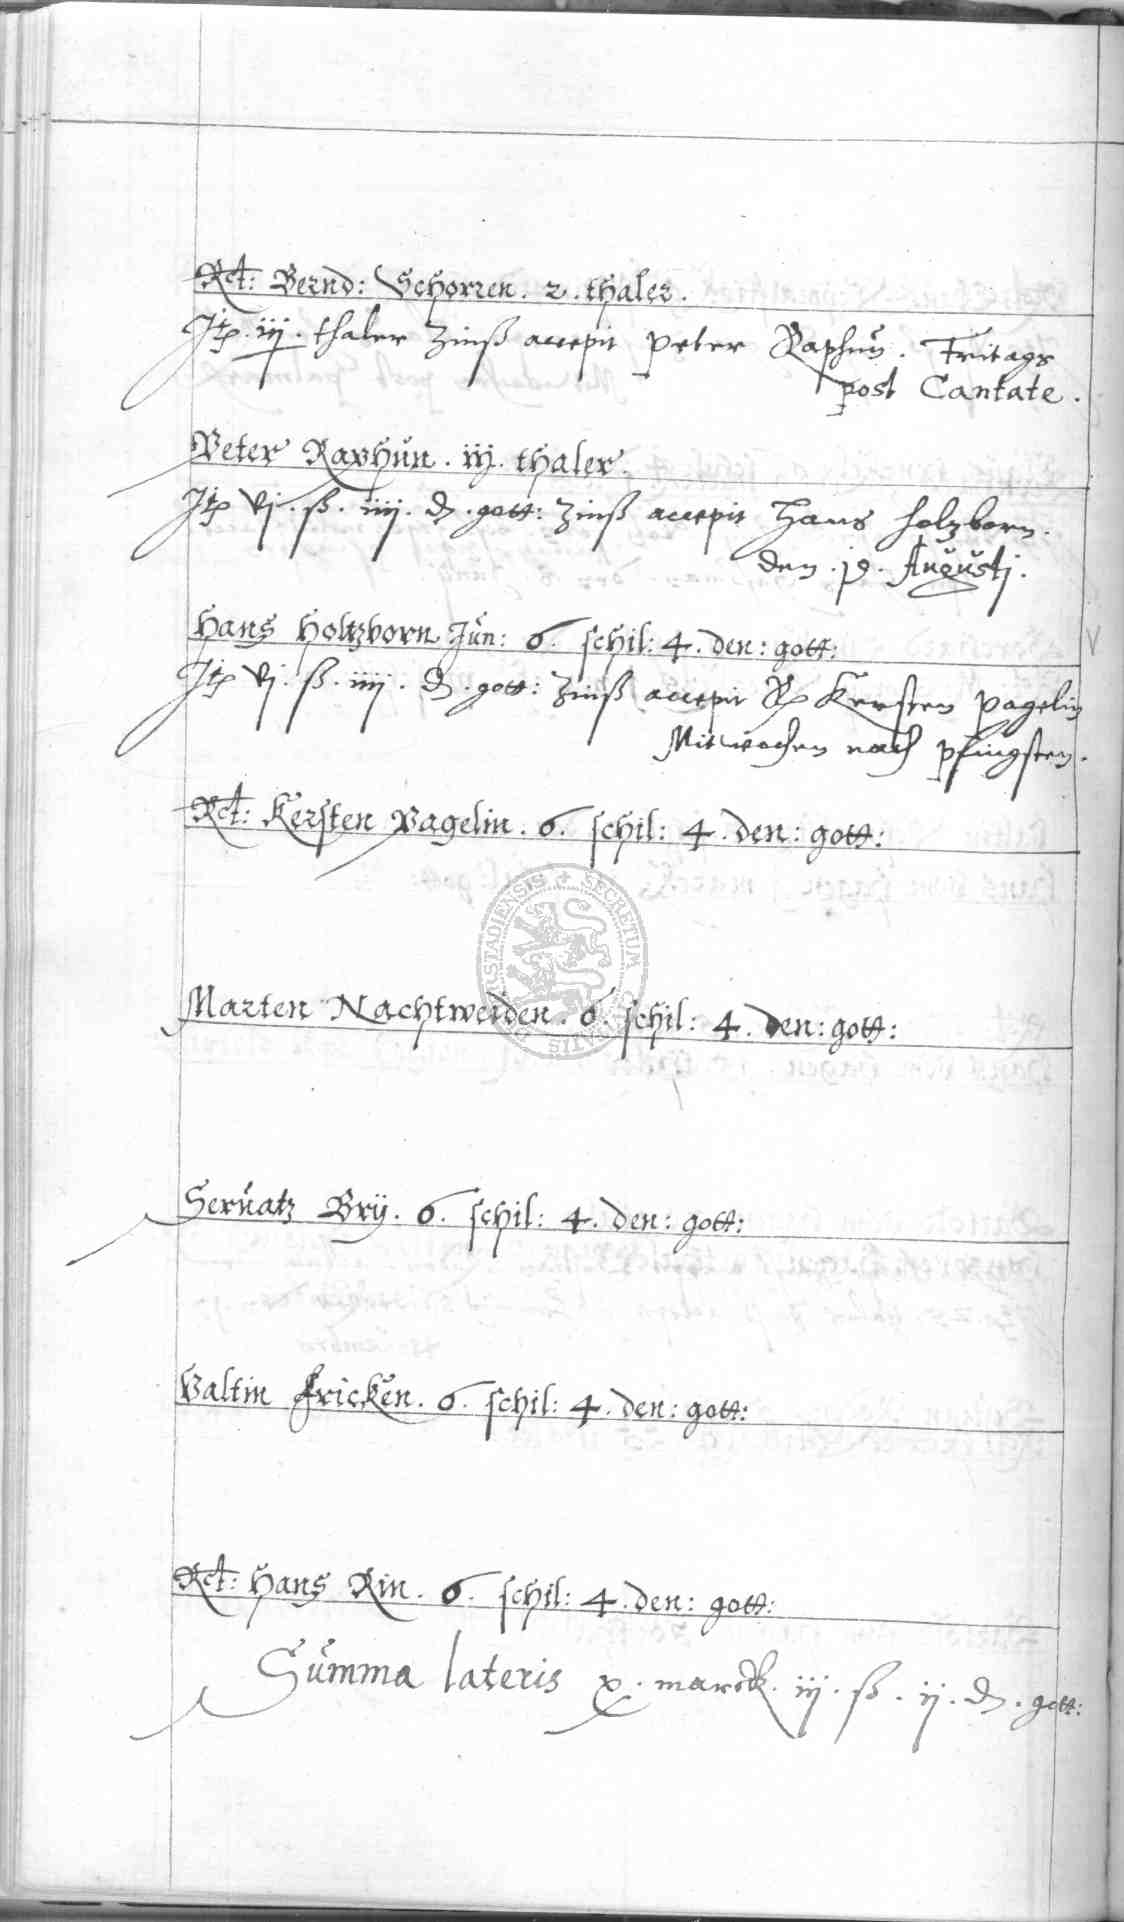 Rct: Bernd: Schorren. 2. thaler.
Itp. iij. thaler Zinß accepit peter Raphun. Fritags
post Cantate.
Peter Raphun. iij. thaler.
Itp vj. ß. iiij. d. gott: Zinß accepit Hans holzborn.
den. 19. Augustj.
Hans Holtzborn Jun: 6. schil: 4. den: gott:
Itp vj. ß. iiij. d. gott: Zinß accepit Kersten pagelin
Mitwochen nach pfingsten.
Rct: Kersten Pagelin. 6. schil: 4. den: gott:
SECRETUM
Marten Nachtweiden. 6. schil: 4. den: gott:
Seruatz Brÿ. 6. schil: 4. den: gott:
Valtin fricken. 6. schil: 4. den: gott:
Rct: Hans Rin. 6. schil: 4. den: gott:
Summa lateris x. marck. iij. ß. ij. d. gott: